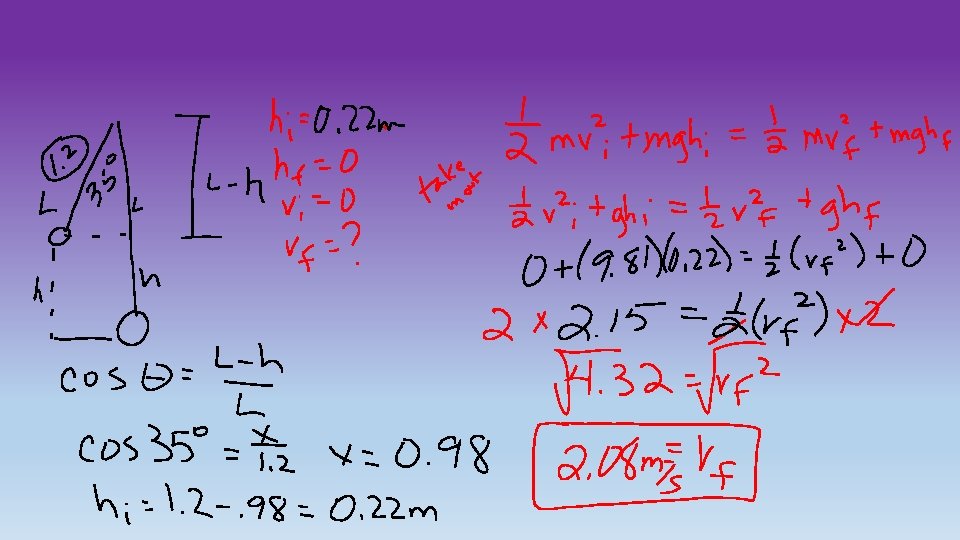 1.2
L
35°
L
h
h
L-h
hi = 0.22m
hf = 0
vi = 0
vf = ?
take m out
1/2 mv²i + mghi = 1/2 mv²f + mghf
1/2 v²i + ghi = 1/2 v²f + ghf
0 + (9.81)(0.22) = 1/2 (vf²) + 0
2 × 2.15 = 1/2 (vf²) × 2
√4.32 = √vf²
2.08 m/s = vf
cos θ = L-h / L
cos 35° = x / 1.2 x = 0.98
hi = 1.2 - .98 = 0.22m